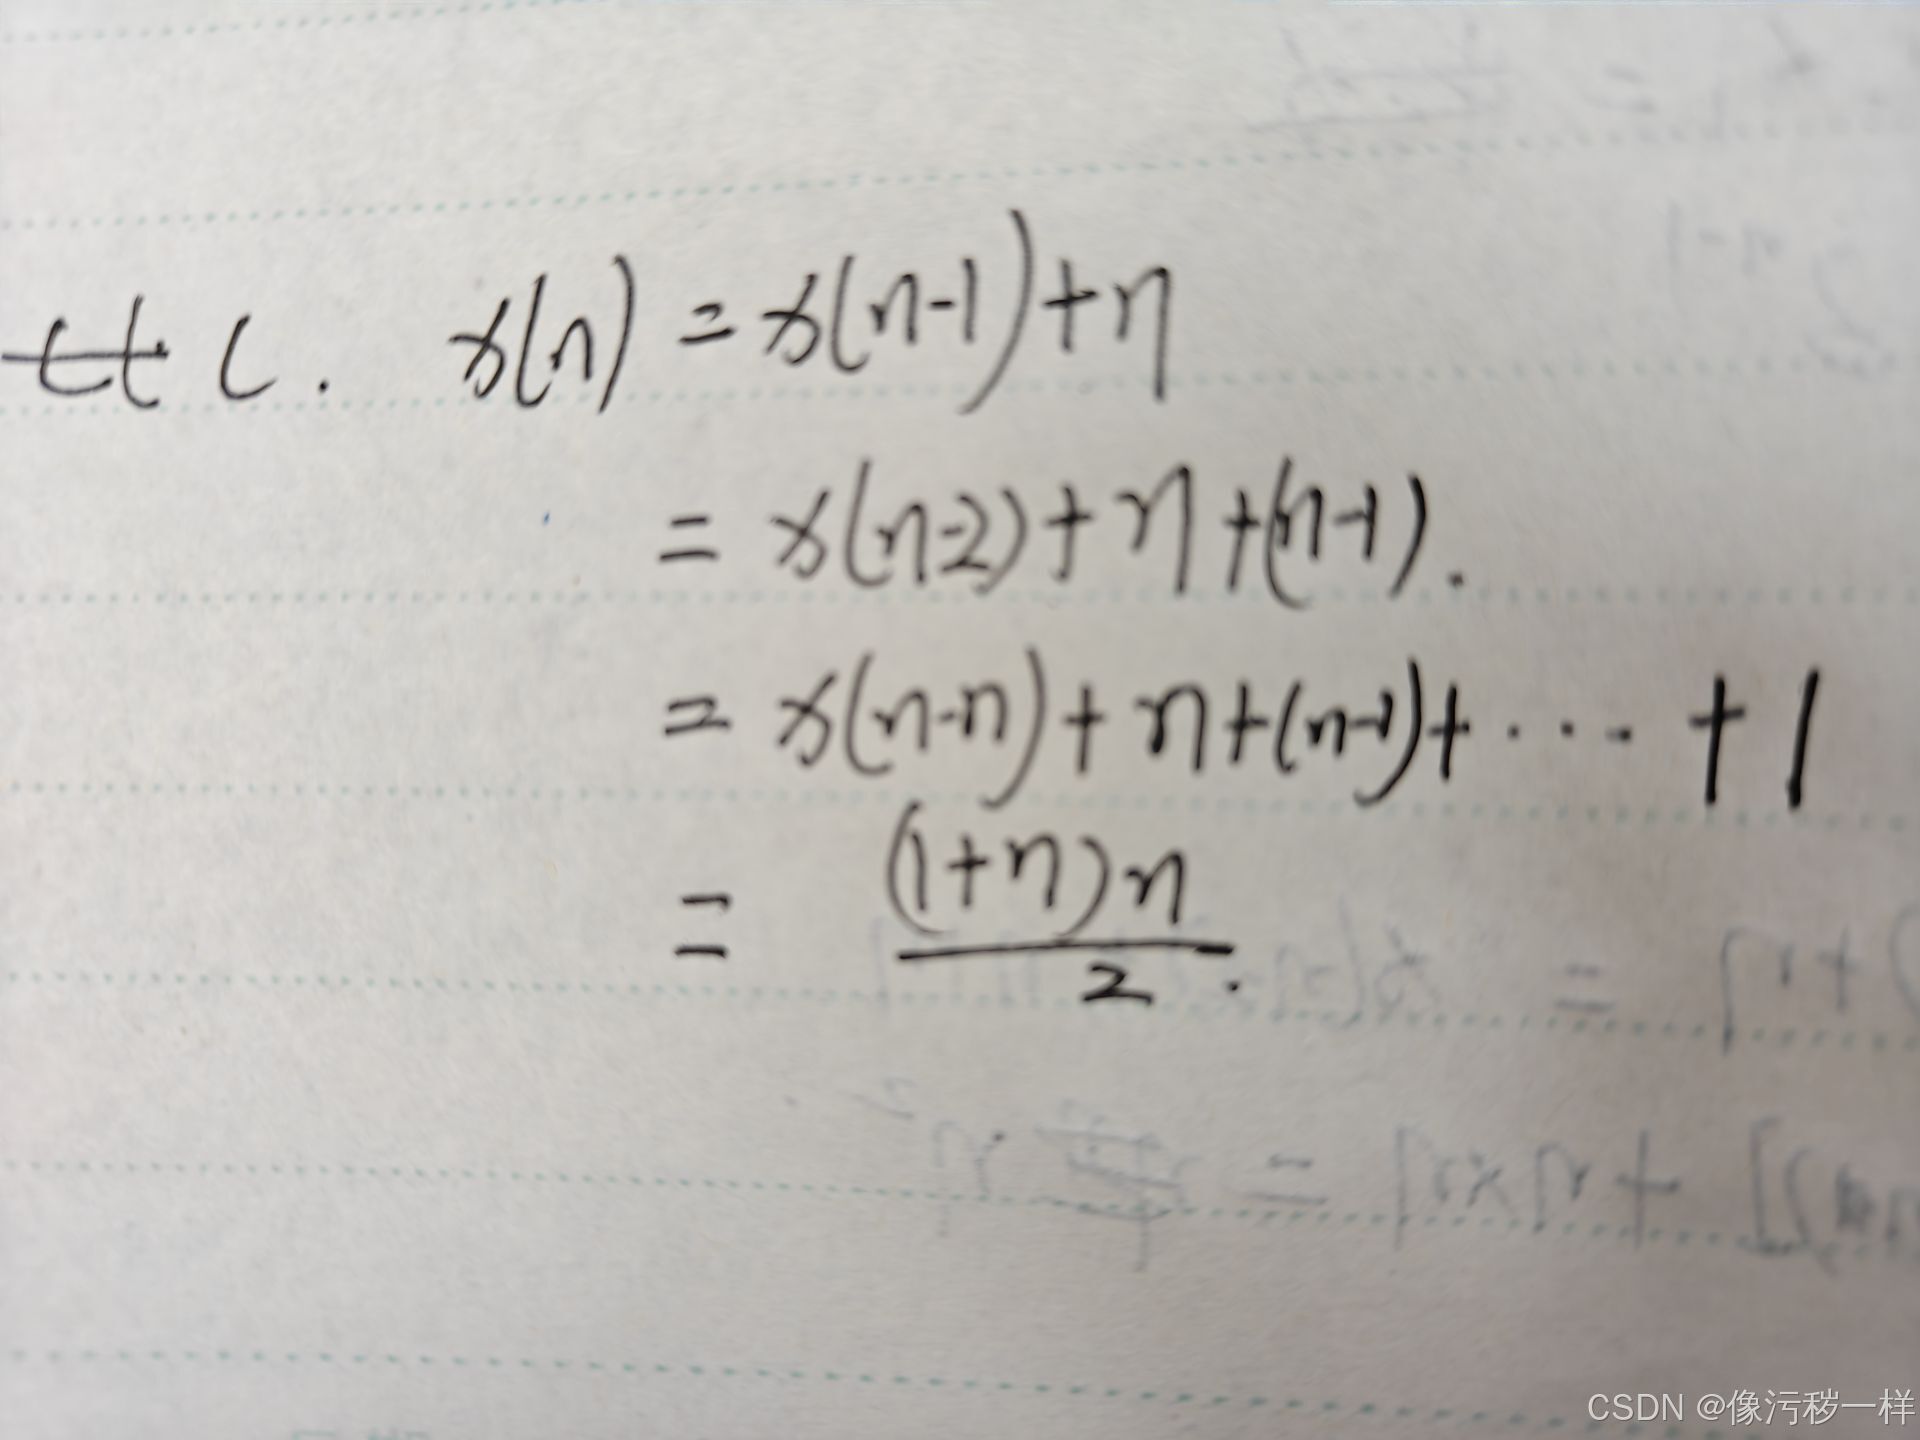 c. x(n) = x(n-1)+n
= x(n-2)+n+(n-1).
= x(n-n)+n+(n-1)+ ... +1
= (1+n)n/2.
CSDN @像污秽一样